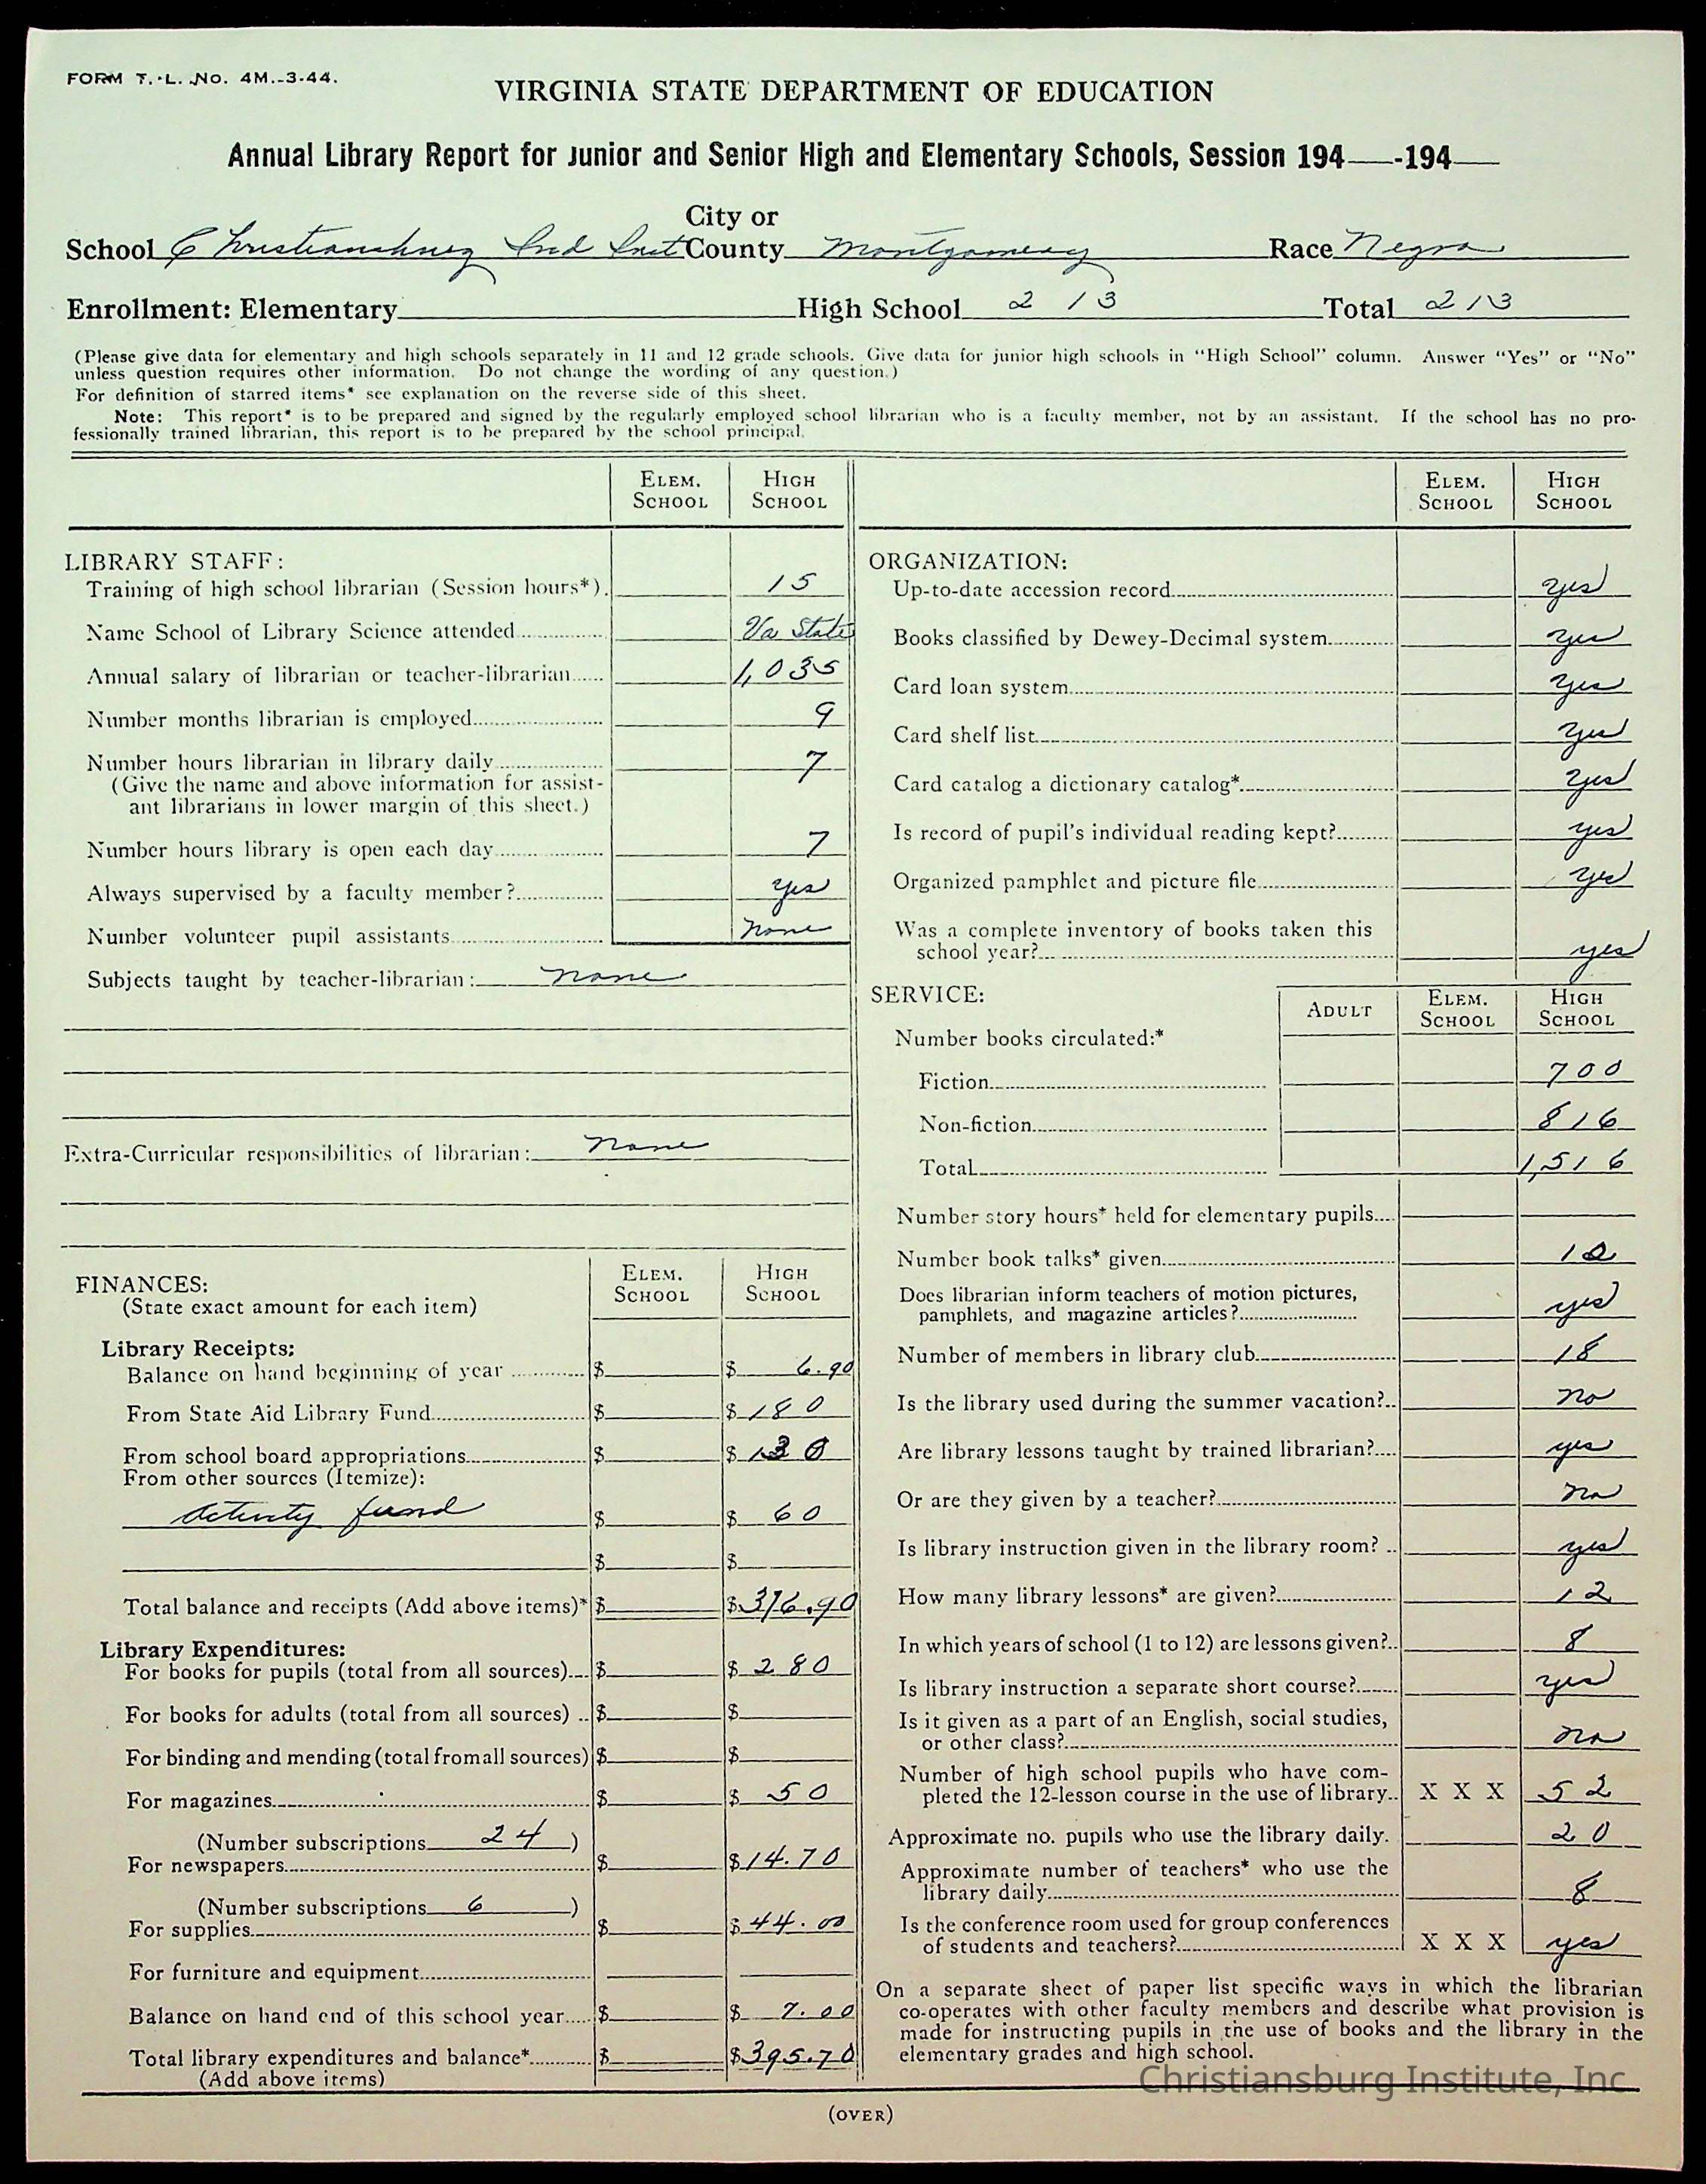 FORM T.-L. No. 4M.-3-44.
VIRGINIA STATE DEPARTMENT OF EDUCATION
Annual Library Report for Junior and Senior High and Elementary Schools, Session 194 -194
School Christiansburg Ind Inst City or County Montgomery Race Negro
Enrollment: Elementary High School 213 Total 213
(Please give data for elementary and high schools separately in 11 and 12 grade schools. Give data for junior high schools in "High School" column. Answer "Yes" or "No"
unless question requires other information. Do not change the wording of any question.)
For definition of starred items* see explanation on the reverse side of this sheet.
Note: This report* is to be prepared and signed by the regularly employed school librarian who is a faculty member, not by an assistant. If the school has no pro-
fessionally trained librarian, this report is to be prepared by the school principal.
ELEM. SCHOOL HIGH SCHOOL
LIBRARY STAFF:
Training of high school librarian (Session hours*). 15
Name School of Library Science attended Va State
Annual salary of librarian or teacher-librarian 1,035
Number months librarian is employed 9
Number hours librarian in library daily 7
(Give the name and above information for assist-
ant librarians in lower margin of this sheet.)
Number hours library is open each day 7
Always supervised by a faculty member? yes
Number volunteer pupil assistants none
Subjects taught by teacher-librarian: none
Extra-Curricular responsibilities of librarian: none
FINANCES: ELEM. SCHOOL HIGH SCHOOL
(State exact amount for each item)
Library Receipts:
Balance on hand beginning of year $ $ 6.90
From State Aid Library Fund $ $ 180
From school board appropriations $ $ 130
From other sources (Itemize):
Activity fund $ $ 60
$ $
Total balance and receipts (Add above items)* $ $376.90
Library Expenditures:
For books for pupils (total from all sources) $ $ 280
For books for adults (total from all sources) $ $
For binding and mending (total from all sources) $ $
For magazines $ $ 50
(Number subscriptions 24 )
For newspapers $ $14.70
(Number subscriptions 6 )
For supplies $ $44.00
For furniture and equipment
Balance on hand end of this school year $ $ 7.00
Total library expenditures and balance* $ $395.70
(Add above items)
ELEM. SCHOOL HIGH SCHOOL
ORGANIZATION:
Up-to-date accession record yes
Books classified by Dewey-Decimal system yes
Card loan system yes
Card shelf list yes
Card catalog a dictionary catalog* yes
Is record of pupil's individual reading kept? yes
Organized pamphlet and picture file yes
Was a complete inventory of books taken this
school year? yes
SERVICE: ADULT ELEM. SCHOOL HIGH SCHOOL
Number books circulated:*
Fiction 700
Non-fiction 816
Total 1,516
Number story hours* held for elementary pupils
Number book talks* given
Does librarian inform teachers of motion pictures,
pamphlets, and magazine articles? yes
Number of members in library club 18
Is the library used during the summer vacation? no
Are library lessons taught by trained librarian? yes
Or are they given by a teacher? no
Is library instruction given in the library room? yes
How many library lessons* are given? 12
In which years of school (1 to 12) are lessons given? 8
Is library instruction a separate short course? yes
Is it given as a part of an English, social studies,
or other class? no
Number of high school pupils who have com-
pleted the 12-lesson course in the use of library X X X 52
Approximate no. pupils who use the library daily. 20
Approximate number of teachers* who use the
library daily 8
Is the conference room used for group conferences
of students and teachers? X X X yes
On a separate sheet of paper list specific ways in which the librarian
co-operates with other faculty members and describe what provision is
made for instructing pupils in the use of books and the library in the
elementary grades and high school.
Christiansburg Institute, Inc
(OVER)